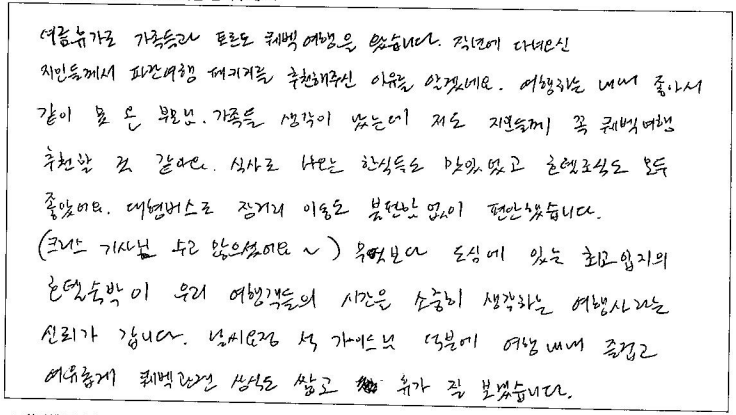 여름휴가로 가족들과 토론토 퀘벡여행을 왔습니다. 작년에 다녀오신
지인들께서 파란여행 패키지를 추천해주신 이유를 알겠네요. 여행하는 내내 좋아서
같이 못 온 부모님, 가족들 생각이 났는데 저도 지인들께 꼭 퀘벡여행
추천할 것 같아요. 식사로 나오는 한식들도 맛있었고 호텔조식도 모두
좋았어요. 대형버스로 장거리 이동도 불편함없이 편안했습니다.
(크리스 기사님 수고 많으셨어요~) 무엇보다 도심에 있는 최고입지의
호텔숙박이 우리 여행객들의 시간을 소중히 생각하는 여행사라는
신뢰가 갑니다. 날씨요정 석 가이드님 덕분에 여행내내 즐겁고
여유롭게 퀘벡관련 상식도 쌓고 휴가 잘 보냈습니다.